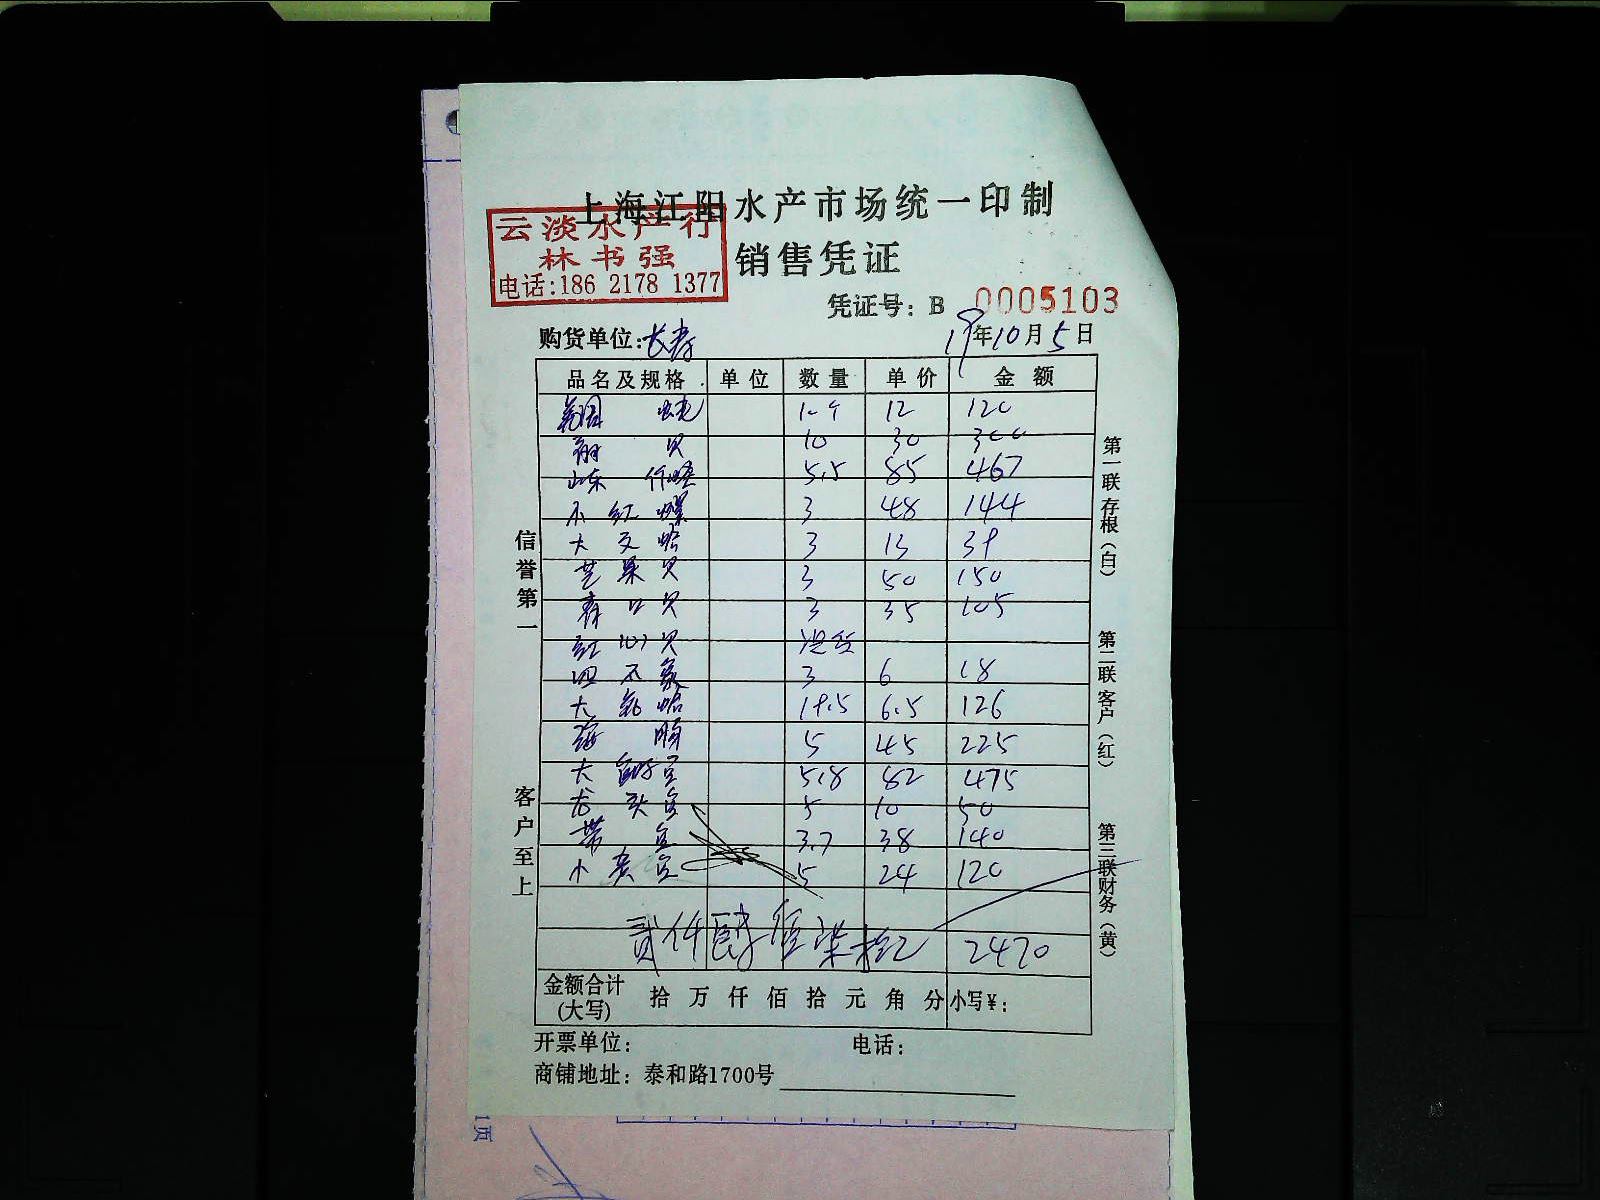 上海江阳水产市场统一印制
云淡水产行
林书强
电话:186 2178 1377
销售凭证
凭证号: B 0005103
购货单位:长寿 19年10月5日
品名及规格 单位 数量 单价 金额
12 120
贝 10 30 300
山东 5.5 85 467
小红螺 3 48 144
大文蛤 3 13 39
芒果贝 3 50 150
青口贝 3 35 105
红 贝
四不象 3 6 18
大 蛤 19.5 6.5 126
5 45 225
大 5.8 82 475
龙头鱼 5 10 50
带鱼 3.7 38 140
小黄鱼 5 24 120
贰仟 佰柒拾 2470
金额合计
(大写) 拾 万 仟 佰 拾 元 角 分 小写¥:
开票单位: 电话:
商铺地址: 泰和路1700号
信誉第一
客户至上
第一联存根(白)
第二联客户(红)
第三联财务(黄)
1页